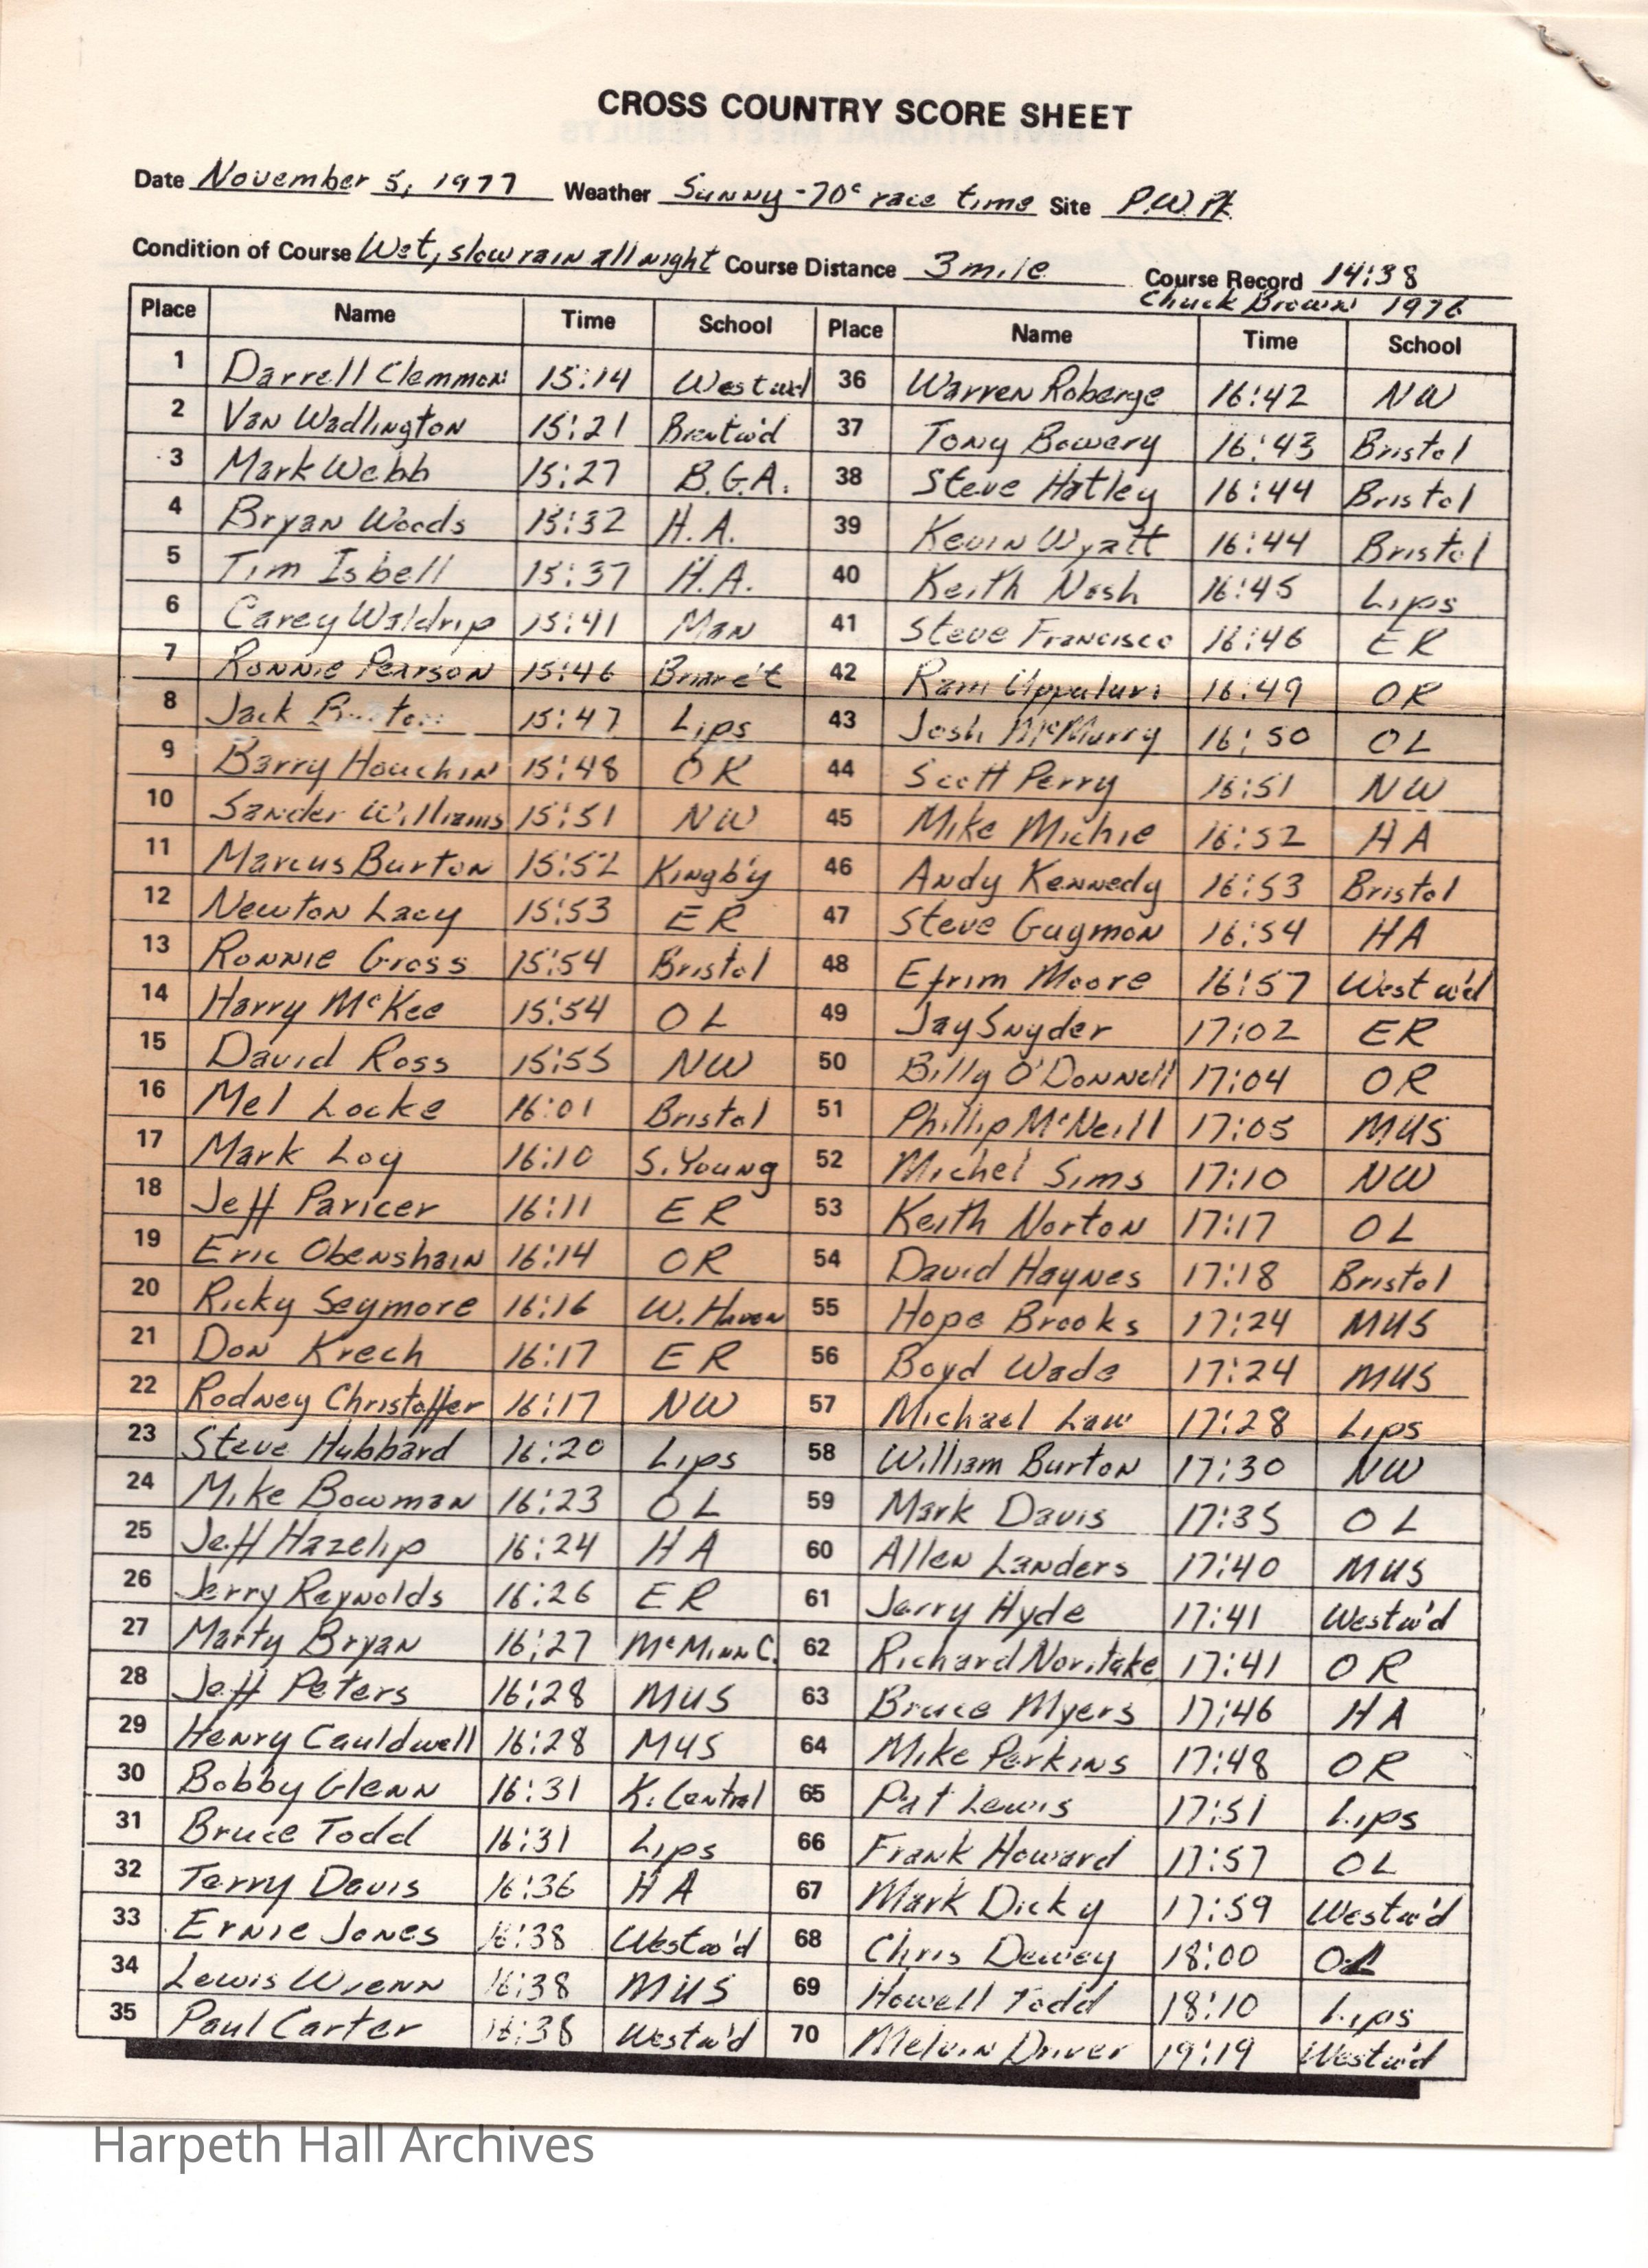 CROSS COUNTRY SCORE SHEET
Date November 5, 1977 Weather Sunny-70° race time Site P.W.Pk
Condition of Course Wet, slow rain all night Course Distance 3 mile Course Record 14:38
Chuck Brown 1976
Place Name Time School Place Name Time School
1 Darrell Clemmon 15:14 Westwd 36 Warren Roberge 16:42 NW
2 Van Wadlington 15:21 Brentw'd 37 Tony Bowery 16:43 Bristol
3 Mark Webb 15:27 B.G.A. 38 Steve Hatley 16:44 Bristol
4 Bryan Woods 15:32 H.A. 39 Kevin Wyatt 16:44 Bristol
5 Tim Isbell 15:37 H.A. 40 Keith Nash 16:45 Lips
6 Carey Waldrip 15:41 Man 41 Steve Francisco 16:46 ER
7 Ronnie Pearson 15:46 Briarc't 42 Ram Uppuluri 16:49 OR
8 Jack 15:47 Lips 43 Josh McMurry 16:50 OL
9 Barry Houchin 15:48 OR 44 Scott Perry 16:51 NW
10 Sander Williams 15:51 NW 45 Mike Michie 16:52 HA
11 Marcus Burton 15:52 Kingb'y 46 Andy Kennedy 16:53 Bristol
12 Newton Lacy 15:53 ER 47 Steve Guymon 16:54 HA
13 Ronnie Gross 15:54 Bristol 48 Efrim Moore 16:57 West w'd
14 Harry McKee 15:54 OL 49 Jay Snyder 17:02 ER
15 David Ross 15:55 NW 50 Billy O'Donnell 17:04 OR
16 Mel Locke 16:01 Bristol 51 Phillip McNeill 17:05 MUS
17 Mark Loy 16:10 S.Young 52 Michel Sims 17:10 NW
18 Jeff Paricer 16:11 ER 53 Keith Norton 17:17 OL
19 Eric Obenshain 16:14 OR 54 David Haynes 17:18 Bristol
20 Ricky Seymore 16:16 W. Haven 55 Hope Brooks 17:24 MUS
21 Don Krech 16:17 ER 56 Boyd Wade 17:24 MUS
22 Rodney Christoffer 16:17 NW 57 Michael Law 17:28 Lips
23 Steve Hubbard 16:20 Lips 58 William Burton 17:30 NW
24 Mike Bowman 16:23 OL 59 Mark Davis 17:35 OL
25 Jeff Hazelip 16:24 HA 60 Allen Landers 17:40 MUS
26 Jerry Reynolds 16:26 ER 61 Jerry Hyde 17:41 Westw'd
27 Marty Bryan 16:27 McMinn C. 62 Richard Noritake 17:41 OR
28 Jeff Peters 16:28 MUS 63 Bruce Myers 17:46 HA
29 Henry Cauldwell 16:28 MUS 64 Mike Perkins 17:48 OR
30 Bobby Glenn 16:31 K. Central 65 Pat Lewis 17:51 Lips
31 Bruce Todd 16:31 Lips 66 Frank Howard 17:57 OL
32 Terry Davis 16:36 HA 67 Mark Dicky 17:59 Westw'd
33 Ernie Jones 16:38 Westw'd 68 Chris Dewey 18:00 OL
34 Lewis Wrenn 16:38 MUS 69 Howell Todd 18:10 Lips
35 Paul Carter 16:38 Westw'd 70 Melvin Driver 19:19 Westw'd
Harpeth Hall Archives